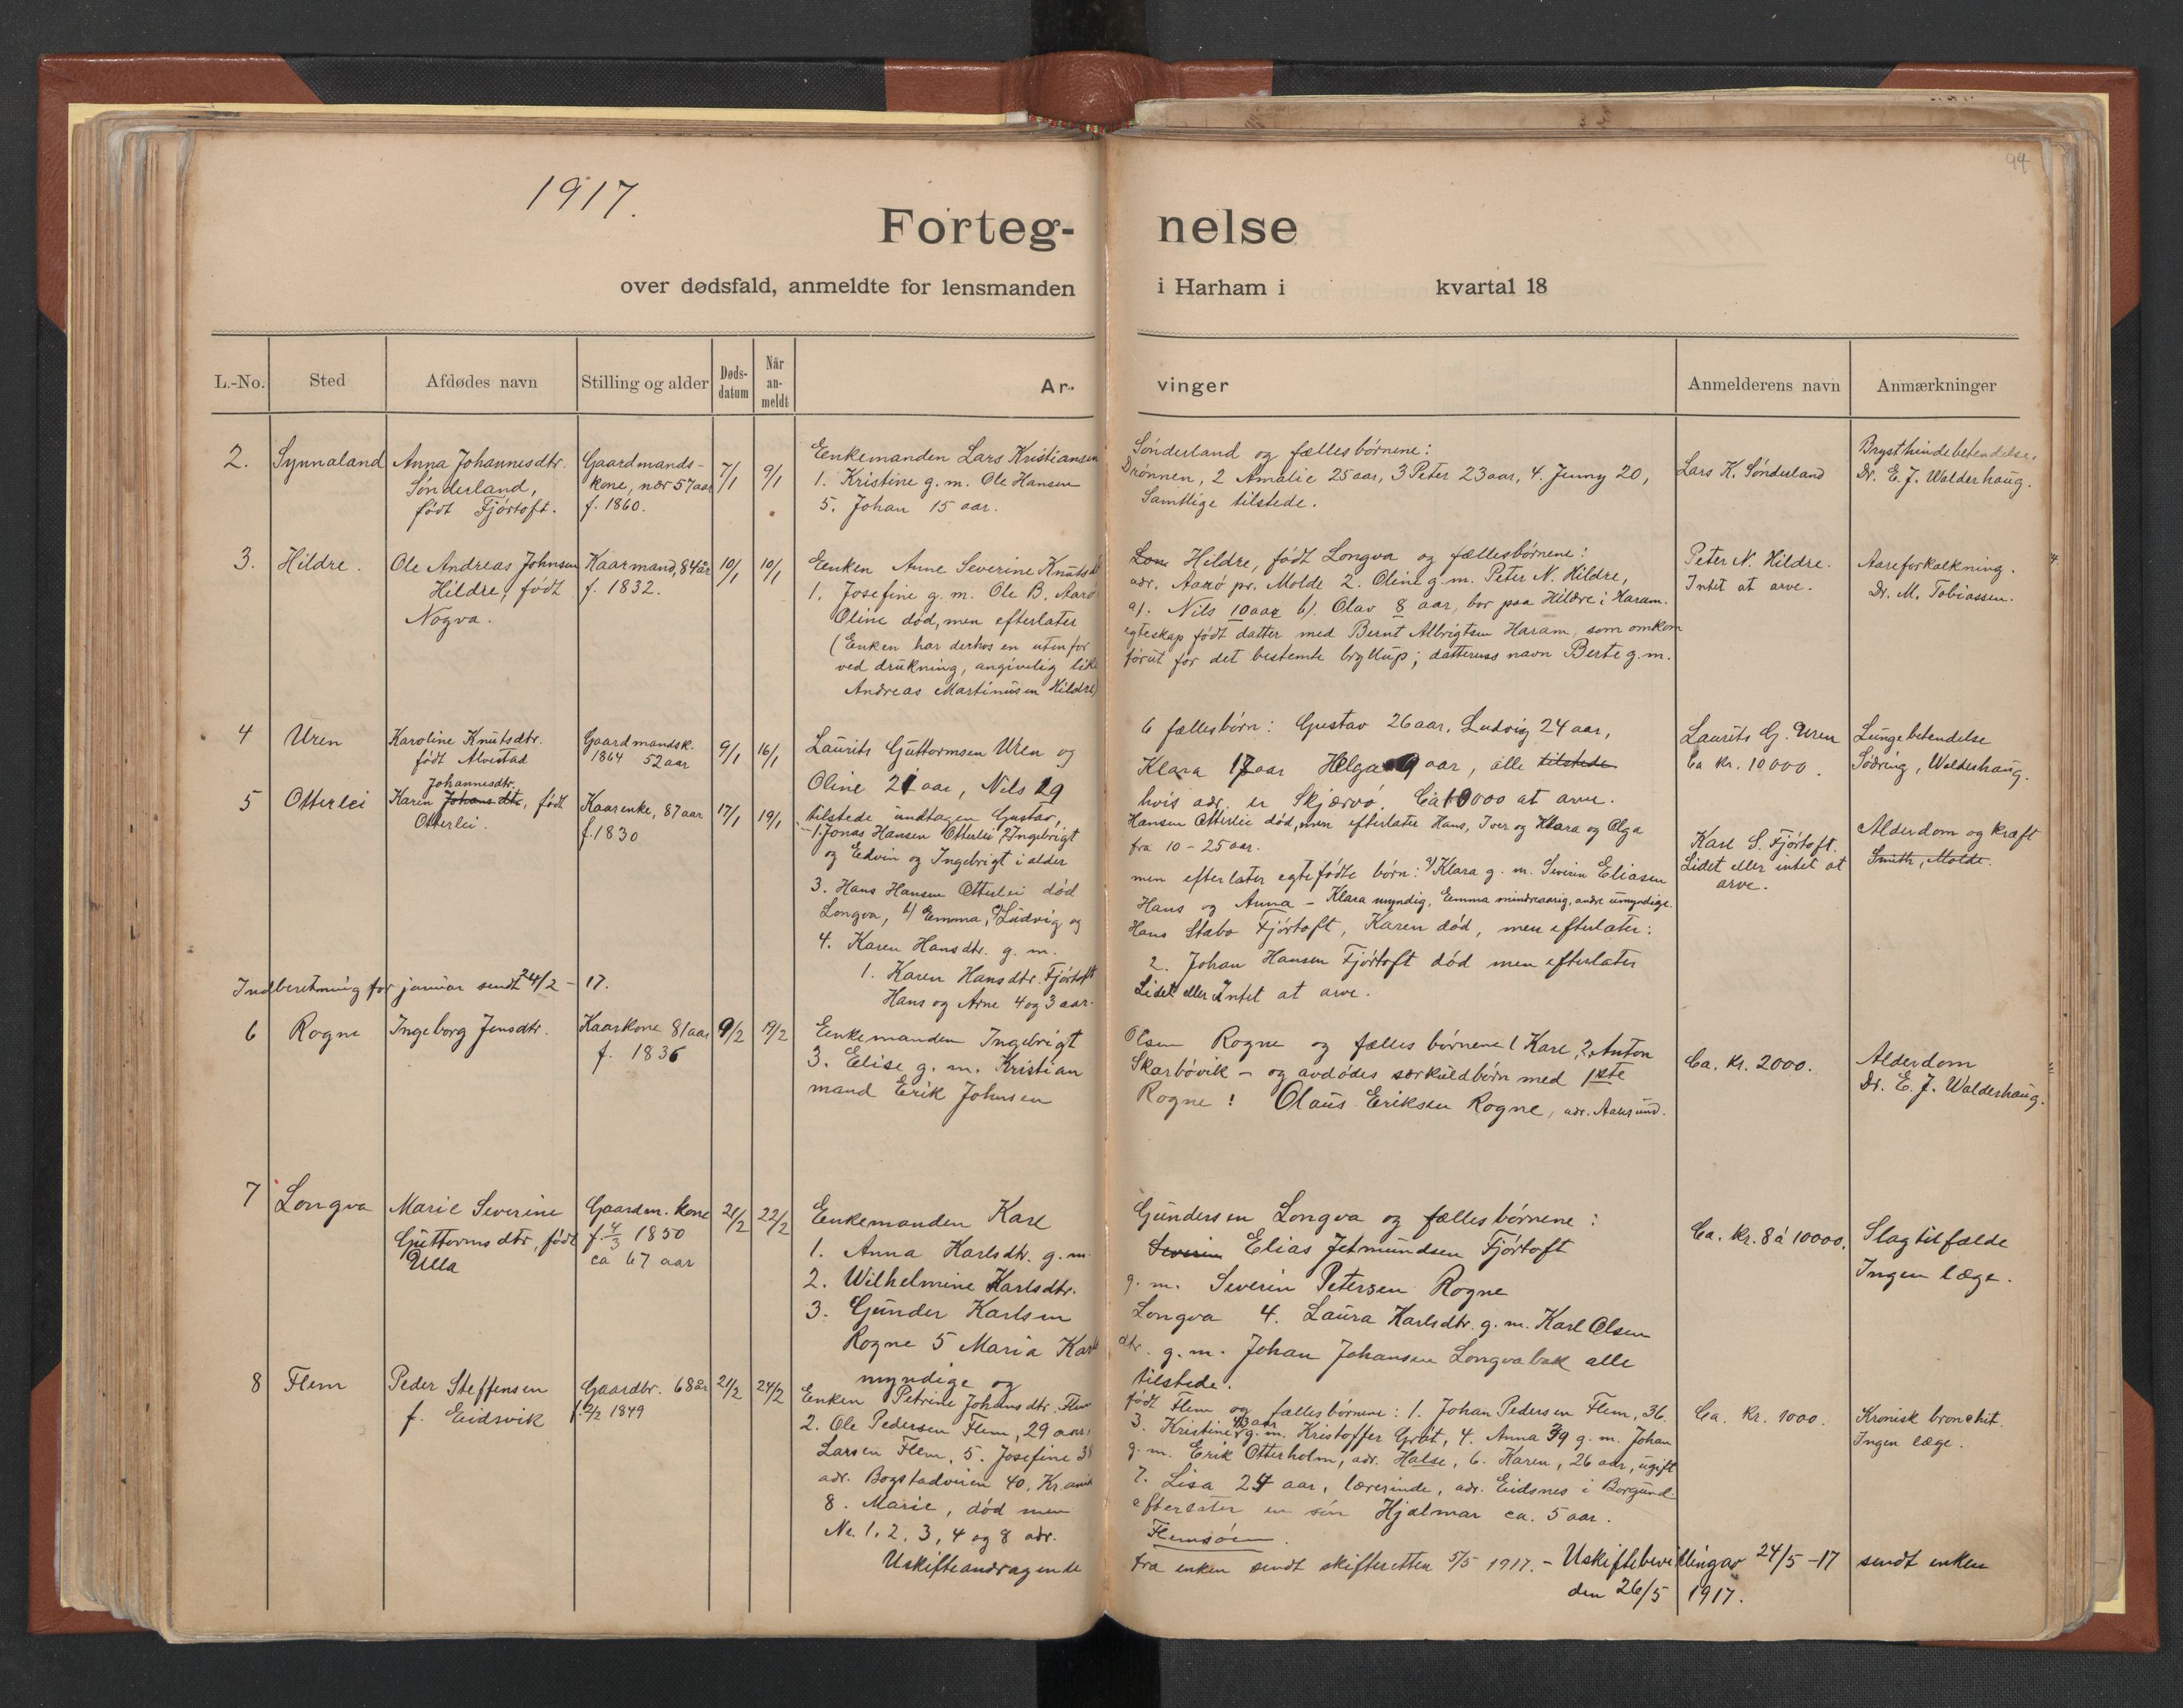 94
1917.
Forteg- nelse
over dødsfald, anmeldte for lensmanden i Harham i kvartal 18
L.-No. Sted Afdødes navn Stilling og alder Døds-datum Når an-meldt Ar- vinger Anmelderens navn Anmærkninger
2. Synnaland Anna Johannesdtr. Gaardmands- 7/1 9/1 Enkemanden Lars Kristiansen Sønderland og fællesbørnene: Lars K. Sønderland Brysthindebetendelse.
Sønderland, kone, nær 57 aar 1. Kristine g. m. Ole Hansen Drønnen, 2 Amalie 25 aar, 3 Peter 23 aar, 4. Jenny 20, Dr. E. J. Walderhaug.
født Fjørtoft. f. 1860. 5. Johan 15 aar. Samtlige tilstede.
3. Hildre. Ole Andreas Johnsen Kaarmand, 84 år 10/1 10/1 Enken Anne Severine Knutsdtr Lon Hildre, født Longva og fællesbørnene: Peter N. Hildre. Aareforkalkning.
Hildre, født f. 1832. 1. Josefine g. m. Ole B. Aarø adr. Aarø pr. Molde 2. Oline g. m. Peter N. Hildre, Intet at arve. Dr. M. Tobiassen.
Nogva. Oline død, men efterlater a). Nils 10 aar b). Olav 8 aar, bor paa Hildre i Haram.
(Enken har derhos en utenfor egteskap født datter med Bernt Albrigtsen Haram, som omkom
ved drukning, angivelig like forut før det bestemte bryllup; datterens navn Berte g. m.
Andreas Martinusen Hildre)
4 Uren Karoline Knutsdtr. Gaardmandsk. 9/1 16/1 Laurits Guttormsen Uren og 6 fællesbørn: Gustav 26 aar, Ludvig 24 aar, Laurits G. Uren Lungebetendelse
født Alvestad 1864 52 aar Oline 21 aar, Nils 19 Klara 17 aar Helga 9 aar, alle tilstede Ca kr. 10000. Sødring, Walderhaug.
tilstede undtagen Gustav, hvis adr. er Skjærvø. Ca 10000 at arve.
5 Otterlei Karen Johans dtr. Johannesdtr., født Kaarenke, 87 aar 17/1 19/1 1. Jonas Hansen Otterlei 2 Ingebrigt Hansen Otterlei død, men efterlater Hans, Iver og Klara og Olga Karl S. Fjørtoft. Alderdom og kræft
Otterlei. f. 1830 og Edvin og Ingebrigt i alder fra 10 - 25 aar. Lidet eller intet at arve. Smith, Molde.
3. Hans Hansen Otterlei død men efterlater egtefødte børn: a) Klara g. m. Severin Eliasen
Longva, b) Emma, c) Ludvig og Hans og Anna - Klara myndig, Emma mindreaarig, andre umyndige.
4. Karen Hansdtr. g. m. Hans Stabo Fjørtoft, Karen død, men efterlater:
1. Karen Hansdtr. Fjørtoft 2. Johan Hansen Fjørtoft død men efterlater
Hans og Arne 4 og 3 aar. Lidet eller Intet at arve.
Indberetning for januar sendt 24/2 - 17.
6 Rogne Ingeborg Jensdtr. Kaarkone 81 aar 9/2 19/2 Enkemanden Ingebrigt Olsen Rogne og fælles børnene 1 Karl, 2. Anton Ca. kr. 2000. Alderdom
f. 1836 3. Elise g. m. Kristian Skarbøvik - og avdødes særkuldbørn med 1ste Dr. E. J. Walderhaug.
mand Erik Johnsen Rogne: Olaus Eriksen Rogne, adr. Aalesund.
7 Longva Marie Severine Gaardm. kone 21/2 22/2 Enkemanden Karl Gundersen Longva og fællesbørnene: Ca. kr. 8 à 10000. Slagtilfælde
Guttormsdtr, født f. 4/3 1850 1. Anna Karlsdtr. g. m. Severin Elias Jetmundsen Fjørtoft Ingen læge.
Ulla ca 67 aar 2. Wilhelmine Karlsdtr. g. m. Severin Petersen Rogne
3. Gunder Karlsen Longva 4. Laura Karlsdtr. g. m. Karl Olsen
Rogne 5 Maria Karls dtr. g. m. Johan Johansen Longvabak alle
myndige og tilstede.
8 Flem Peder Steffensen Gaardbr. 68 år 21/2 24/2 Enken Petrine Johansdtr. Flem født Flem og fællesbørnene: 1. Johan Pedersen Flem, 36. Ca. kr. 1000. Kronisk bronchit.
f. Eidsvik f. 2/2 1849 2. Ole Pedersen Flem, 29 aar, 3. Kristine 43 aar g. m. Kristoffer Grøt, 4. Anna 39 g. m. Johan Ingen læge.
Larsen Flem, 5. Josefine 38 g. m. Erik Otterholm, adr. Halse, 6. Karen, 26 aar, ugift
adr. Bogstadveien 40, Kr.ania 7. Lisa 24 aar, lærerinde, adr. Eidsnes i Borgund
8. Marie, død men efterlater en søn Hjalmar ca. 5 aar.
Nr. 1, 2, 3, 4 og 8 adr. Flemsøen.
Uskifteandragende fra enken sendt skifteretten 5/5 1917. - Uskiftebevilling av 24/5 -17 sendt enken
den 26/5 1917.